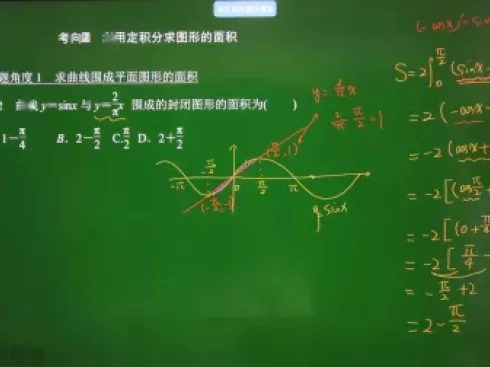 考向 用定积分求图形的面积
题角度1 求曲线围成平面图形的面积
2 y=sinx 与 y=\frac{2}{π}x 围成的封闭图形的面积为( )
1-\frac{π}{4} B. 2-\frac{π}{2} C. \frac{π}{2} D. 2+\frac{π}{2}
y=\frac{2}{π}x
\frac{2}{π}·\frac{π}{2}=1
(\frac{π}{2},1)
-π -\frac{π}{2} 0 \frac{π}{2} π
(-\frac{π}{2},-1)
y=sinx
(-cosx)'=sin
S=2∫_0^{\frac{π}{2}}(sinx-
=2(-cosx-
=-2(cosx+
=-2[(cos\frac{π}{2}
=-2[(0+\frac{π}{4}
=-2[\frac{π}{4}-
=-\frac{π}{2}+2
=2-\frac{π}{2}